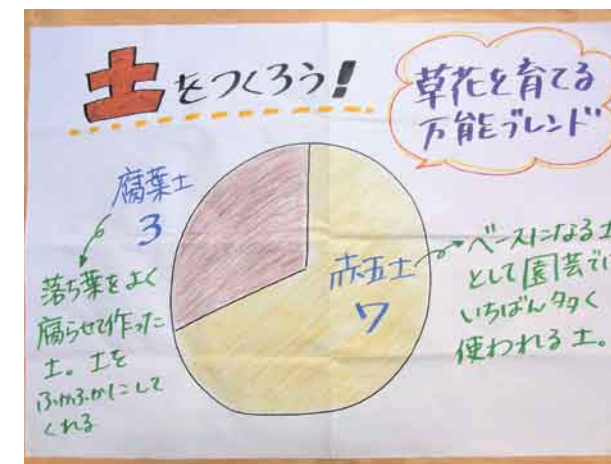 土をつくろう!
草花を育てる
万能ブレンド
腐葉土
3
落ち葉をよく
腐らせて作った
土。土を
ふかふかにして
くれる
赤玉土
7
ベースになる土
として園芸で
いちばん多く
使われる土。